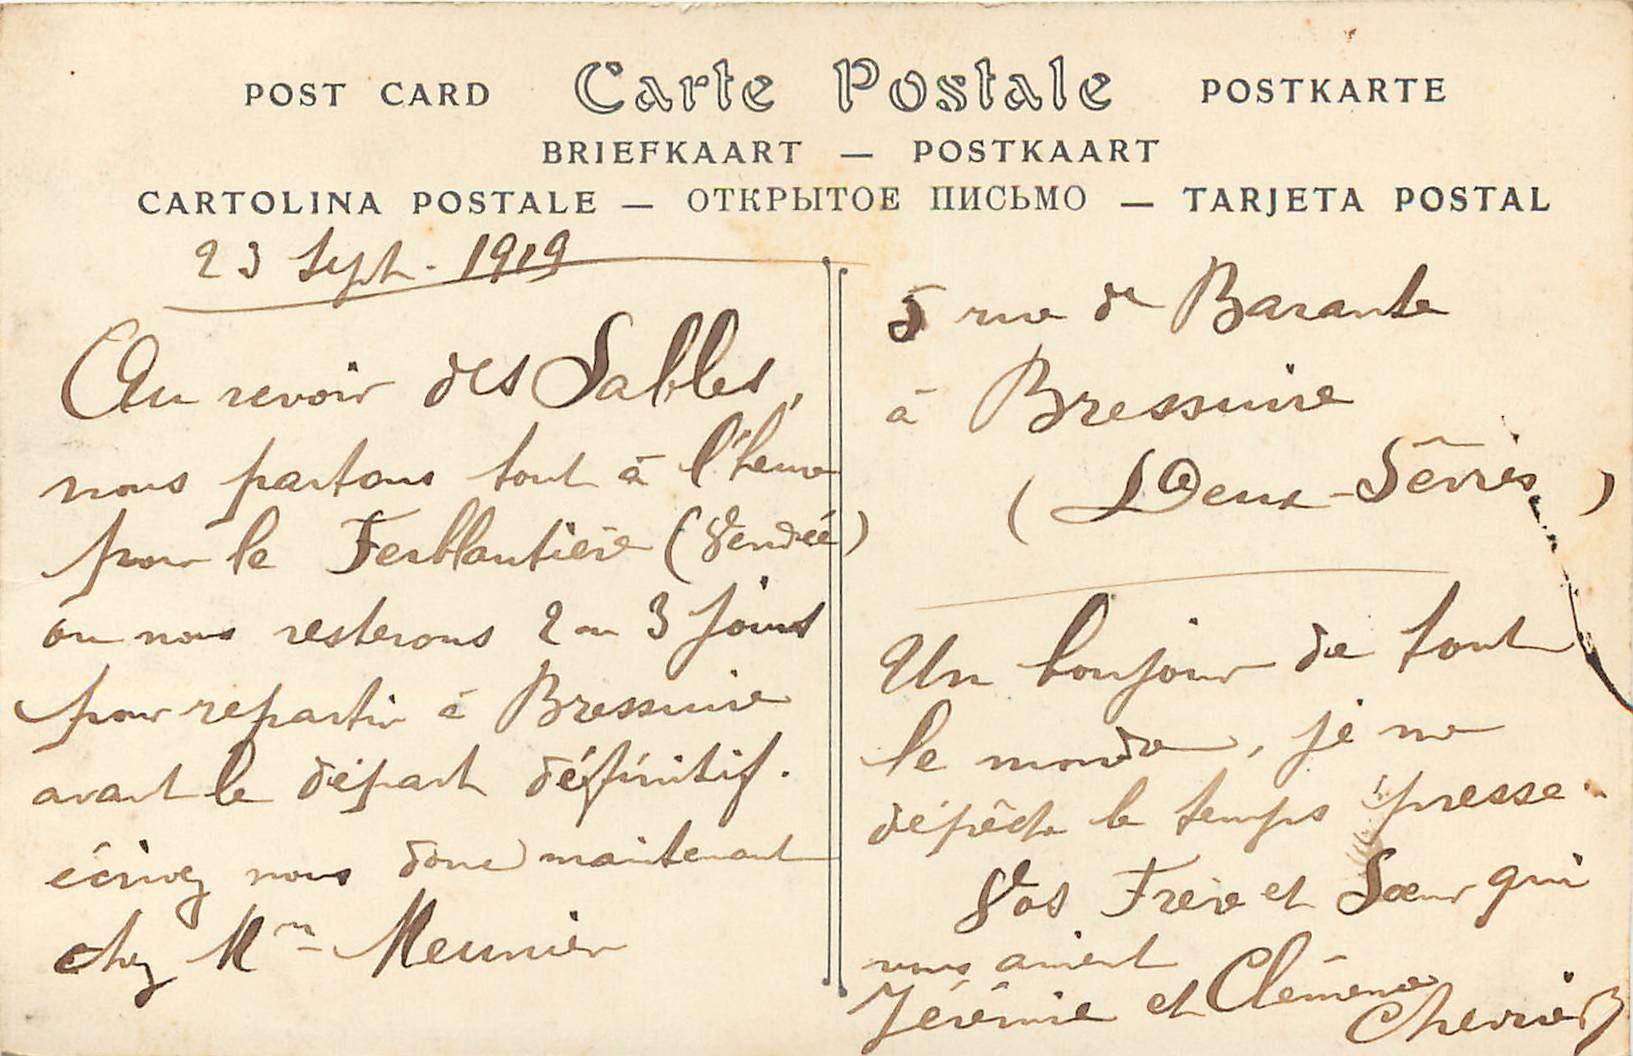 POST CARD Carte Postale POSTKARTE
BRIEFKAART — POSTKAART
CARTOLINA POSTALE — ОТКРЫТОЕ ПИСЬМО — TARJETA POSTAL
23 Sept. 1919
Au revoir des Sables,
nous partons tout à l'heure
pour la Ferblantière (Vendée)
ou nous resterons 2 ou 3 jours
pour repartir à Bressuire
avant le départ définitif.
écrivez nous donc maintenant
chez Mme Meunier
5 rue de Barante
à Bressuire
(Deux-Sèvres)
Un bonjour de tout
le monde, je me
dépêche le temps presse.
Vos Frère et Sœur qui
vous aiment
Jérémie et Clémence
Chevrier